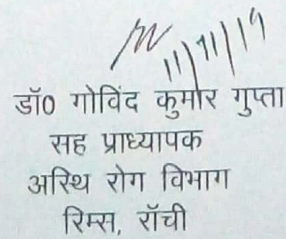 11/11/19
डॉ0 गोविंद कुमार गुप्ता
सह प्राध्यापक
अस्थि रोग विभाग
रिम्स, राँची